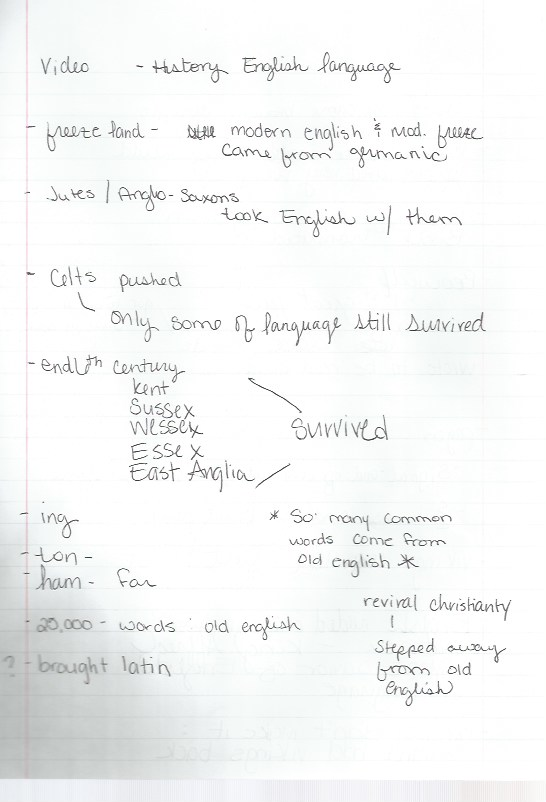 Video - History English language
- freeze land - modern english & mod. freeze
came from germanic
- Jutes / Anglo-Saxons
took English w/ them
- Celts pushed
only some of language still survived
- end 6th century
Kent
Sussex
Wessex
Essex
East Anglia
survived
- ing
- ton -
- ham - far
* So many common
words come from
old english *
- 20,000 - words : old english
? - brought latin
revival christianty
stepped away
from old
english